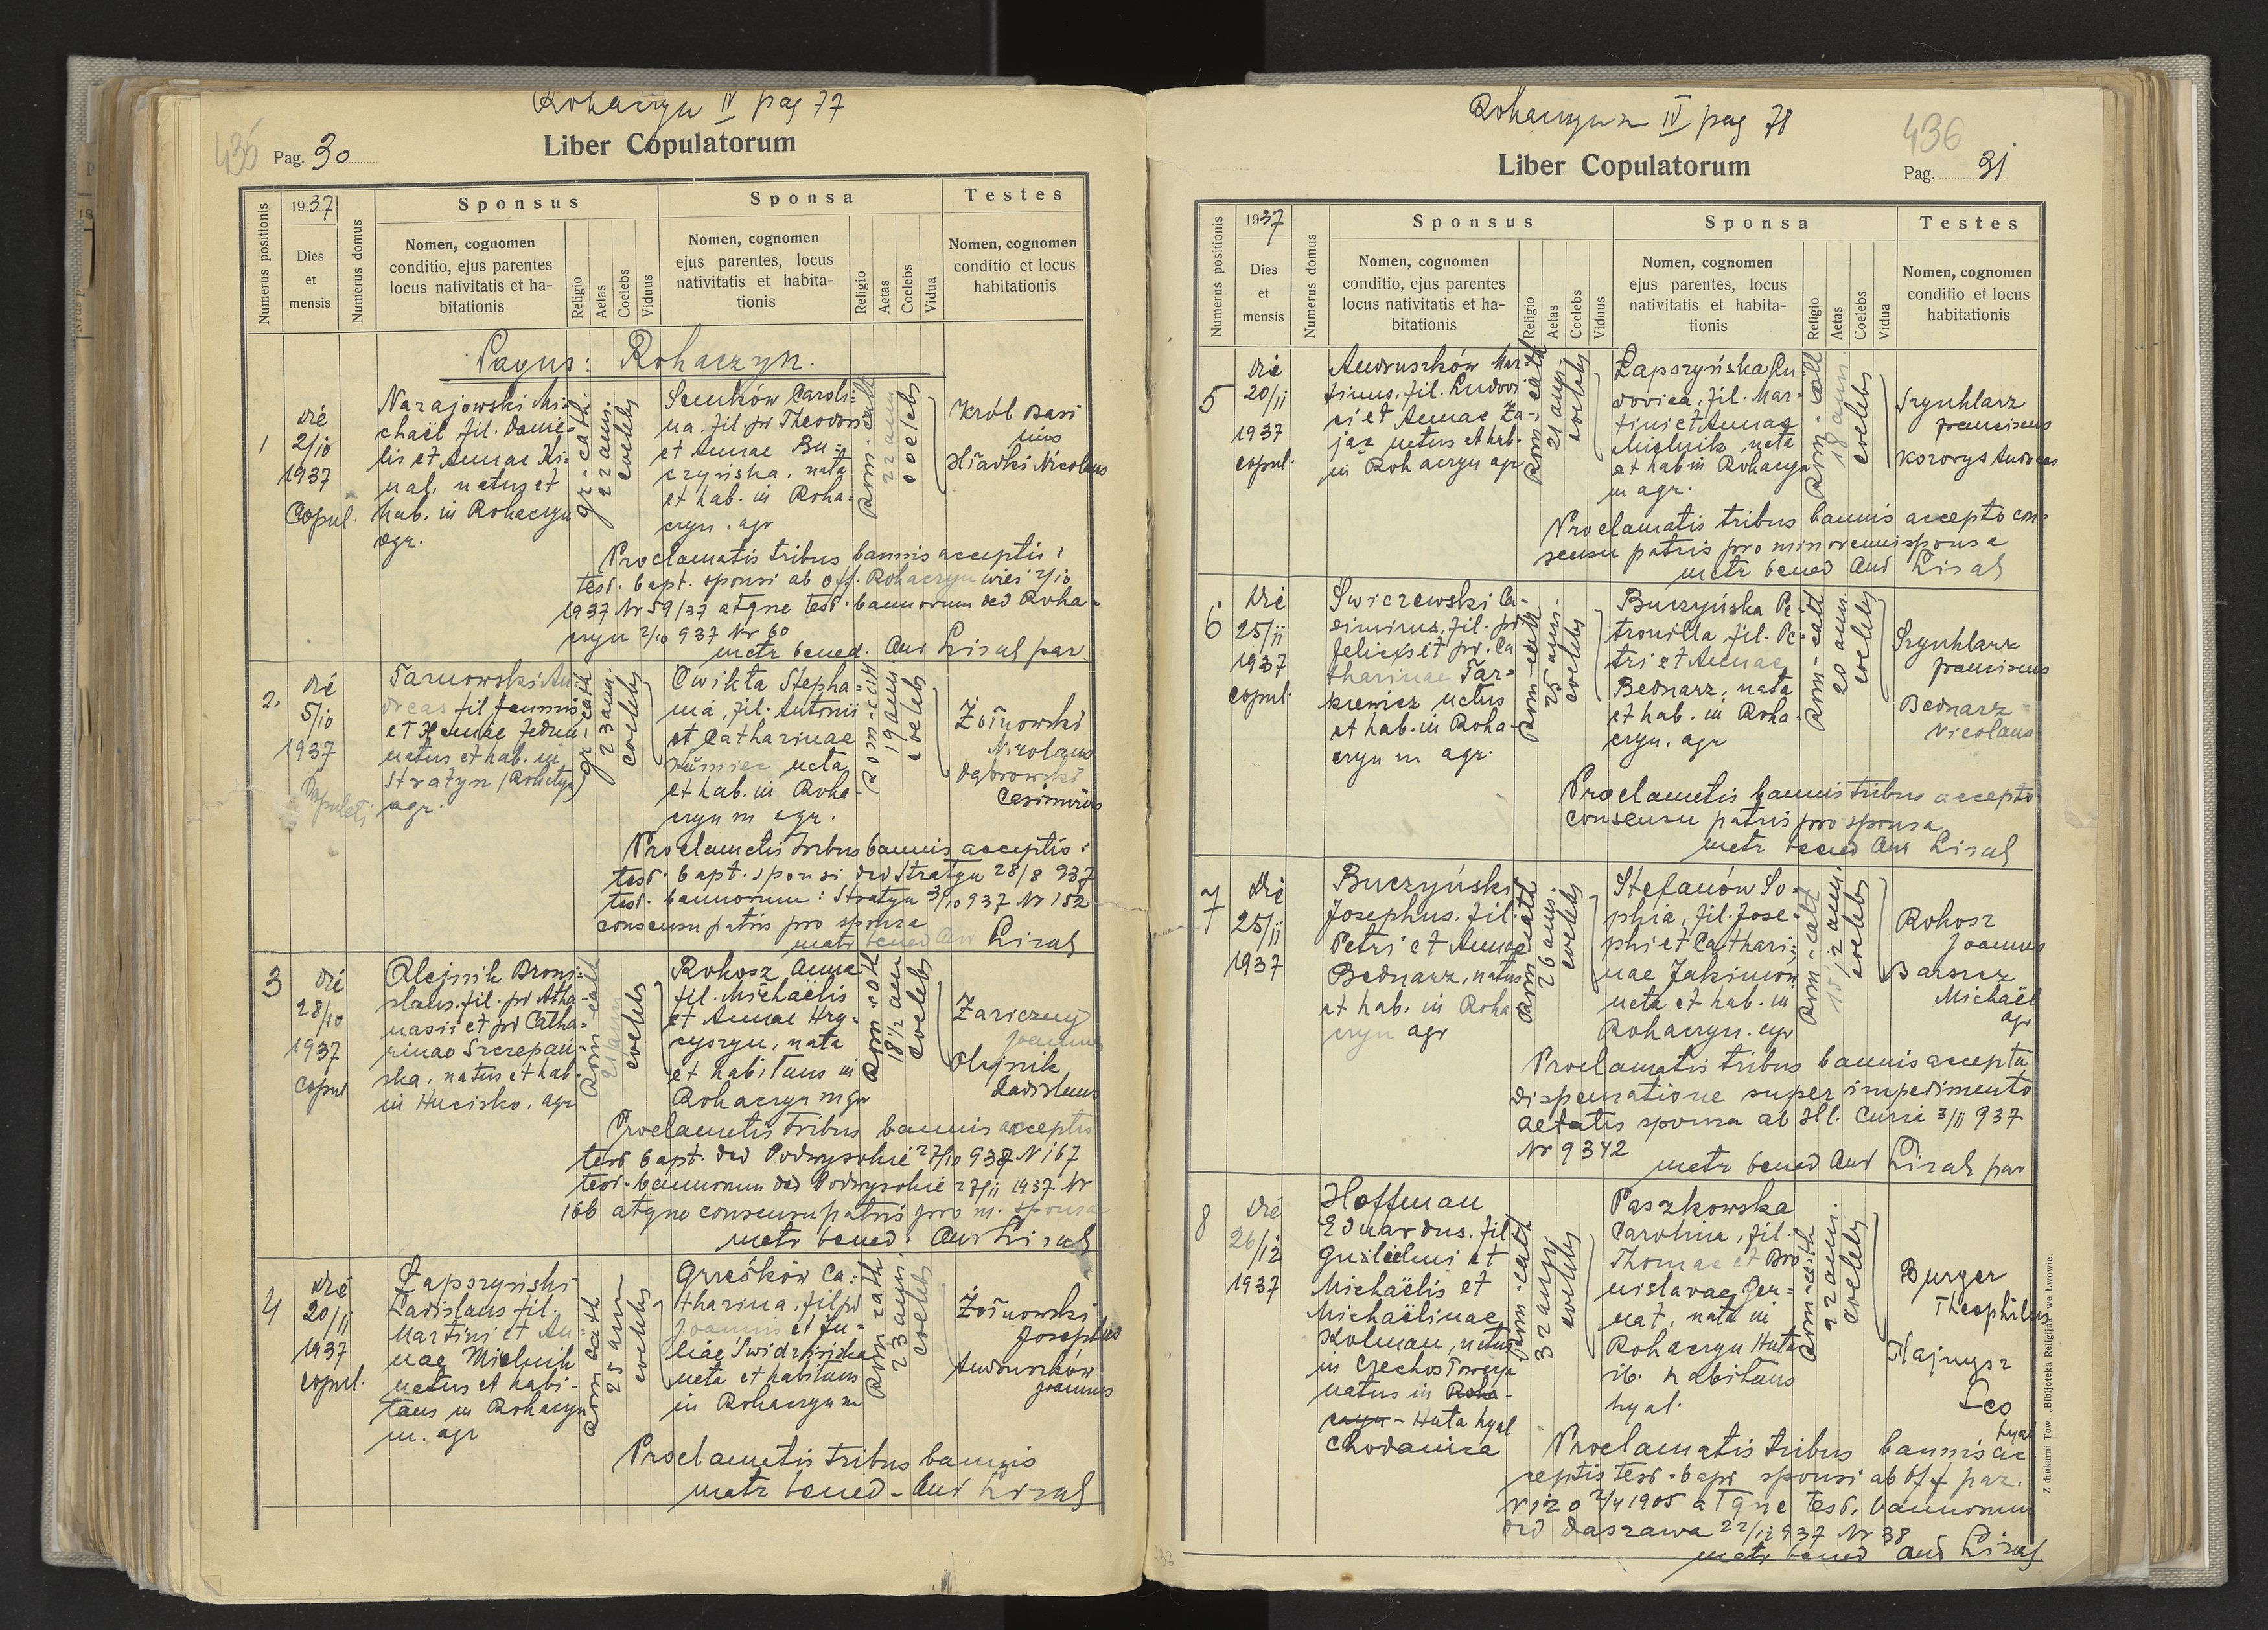 Rohaczyn IV pag 77
435
Pag. 30
Liber Copulatorum
Numerus positionis
1937
Dies
et
mensis
Numerus domus
Sponsus
Nomen, cognomen
conditio, ejus parentes
locus nativitatis et ha-
bitationis
Religio
Aetas
Coelebs
Viduus
Sponsa
Nomen, cognomen
ejus parentes, locus
nativitatis et habita-
tionis
Religio
Aetas
Coelebs
Vidua
Testes
Nomen, cognomen
conditio et locus
habitationis
Pagus: Rohaczyn.
1
die
2/10
1937
Copul.
Narajowski Mi-
chaël, fil. Danie-
lis et Annae Ki-
nal, natus et
hab. in Rohaczyn
agr.
gr-cath
22 ann.
coelebs
Senków Caroli-
na. fil. pr Theodori
et Annae Bu=
czyńska, nata
et hab. in Roha=
czyn. agr
Rom-cath
22 ann
coelebs
Król Basi
lius
Hladki Nicolaus
Proclamatis tribus bannis acceptis:
test. bapt. sponsi ab off. Rohaczyn wieś 2/10
1937 Nr 59/37 atque test. bannorum ded Roha-
czyn 2/10 937 Nr 60
matr bened. And Lizak par
2.
die
5/10
1937
Copulati
Tarnowski An-
dreas fil Joannis
et Hannae Fedun
natus et hab. in
Stratyn (Rohatyn)
agr.
gr-cath
23 ann.
coelebs
Ćwikta Stepha=
nia, fil. Antonii
et Catharinae
nata
et hab. in Roha-
czyn m agr.
Rom-cath
19 ann.
coelebs
Żoľnowski
Nicolaus
Dąbrowski
Casimirus
Proclamatis tribus bannis acceptis:
test. bapt. sponsi ded Stratyn 28/8 937
test. bannorum: Stratyn 3/10 937 Nr 152
consensu patris pro sponsa
matr bened And Lizak
3
die
28/10
1937
copul
Olejnik Broni=
slaus. fil. pr Atha-
nasii et pr Catha=
rinae Szczepań-
ska, natus et hab.
in Hucisko. agr
Rom-cath
coelebs
Rohosz Anna
fil. Michaëlis
et Annae Hry-
cyszyn, nata
et habitans in
Rohaczyn m gr
Rom-cath
18 1/2 ann
coelebs
Zariczny
Joannes
Olejnik
Ladislaus
Proclamatis tribus bannis acceptis
test bapt. ded Podwysokie 27/10 937 N 167
test. bannorum ded Podwysokie 27/11 1937 Nr
166 atque consensu patris pro m. sponsa
matr bened. And Lizak
4
die
20/11
1937
copul.
Łapszyński
Ladislaus fil.
Martini et An-
nae Mielnik
natus et habi-
tans in Rohaczyn
m. agr
Rom cath
25 ann
coelebs
Grześków Ca:
tharina, fil pr
Joannis et Ju=
liae Świdzińska
nata et habitans
in Rohaczyn m
Rom cath
23 ann.
coelebs
Żoľnowski
Josephus
Andruszków
Joannes
Proclamatis tribus bannis
matr bened - And Lizak
Rohaczyn IV pag 78
436
Liber Copulatorum
Pag. 31
Numerus positionis
1937
Dies
et
mensis
Numerus domus
Sponsus
Nomen, cognomen
conditio, ejus parentes
locus nativitatis et ha-
bitationis
Religio
Aetas
Coelebs
Viduus
Sponsa
Nomen, cognomen
ejus parentes, locus
nativitatis et habita-
tionis
Religio
Aetas
Coelebs
Vidua
Testes
Nomen, cognomen
conditio et locus
habitationis
5
die
20/11
1937
copul.
Andruszków Mar-
tinus. fil. Ludovi
ci et Annae Za-
jąc natus et hab.
in Rohaczyn agr
Rom-cath
21 ann.
coelebs
Łapszyńska Lu
dovica, fil. Mar=
tini et Annae
Mielnik, nata
et hab in Rohaczyn
m agr.
Rom-cath
18 ann.
coelebs
Szynklarz
Franciscus
Kozorys Andreas
Proclamatis tribus bannis accepto con=
sensu patris pro minorenni sponsa
matr bened And Lizak
6
die
25/11
1937
copul.
Świczewski Ca-
simirus, fil. pr
Felicis et pr. Ca
tharinae Tar=
kiewicz natus
et hab. in Roha-
czyn m agr.
Rom-cath
25 ann.
coelebs
Buczyńska Pe-
tronilla, fil. Pe-
tri et Annae
Bednarz, nata
et hab. in Roha-
czyn. agr
Rom-cath
20 ann.
coelebs
Szynklarz
Franciscus
Bednarz
Nicolaus
Proclamatis bannis tribus accepto
consensu patris pro sponsa
matr bened And Lizak
7
die
25/11
1937
Buczyński
Josephus. fil.
Petri et Annae
Bednarz, natus
et hab. in Roha
czyn agr
Rom-cath
26 ann.
coelebs
Stefanów So-
phia, fil. Jose-
phi et Cathari=
nae Jakimów
nata et hab. in
Rohaczyn. agr
Rom-cath
15 1/2 ann.
coelebs
Rohosz
Joannes
Barszcz
Michaël
agr
Proclamatis tribus bannis accepta
dispensatione super impedimento
aetatis sponsa ab Ill. Curie 3/11 937
Nr 9342
matr bened And Lizak par
8
die
26/12
1937
Hoffman
Eduardus. fil.
Guilielmi et
Michaëlis et
Michaëlinae
Kolman, natus
in
natus in Roha-
czyn - Huta hyal
Chodanica
Rom-cath
32 ann.
coelebs
Paszkowska
Carolina, fil.
Thomae et Bro
nislavae Ger=
nat, nata in
Rohaczyn Huta
ib. habitans
hyal.
Rom-cath
22 ann.
coelebs
Burger
Theophilus
Hajnysz
Leo
hyal
Proclamatis tribus bannis ac
ceptis test. bapt sponsi ab off par.
N 120 2/4 1905 atque test. bannorum
ded Daszawa 22/12 937 Nr 38
matr bened And Lizak
Z drukarni Tow „Bibljoteka Religijna" we Lwowie.